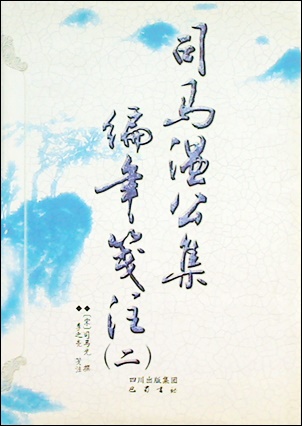 司马温公集
编年箋注(二)
(宋)司马光 撰
李之亮 箋注
四川出版集团
巴蜀书社